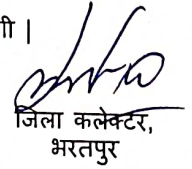 गी |
जिला कलेक्टर,
भरतपुर